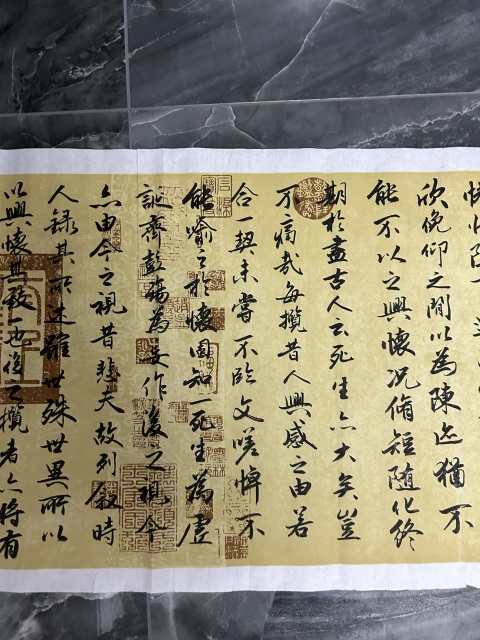 欣俛仰之間以為陳迹猶不
能不以之興懷況脩短隨化終
期於盡古人云死生亦大矣豈
不痛哉每攬昔人興感之由若
合一契未嘗不臨文嗟悼不
能喻之於懷固知一死生為虛
誕齊彭殤為妄作後之視今
亦由今之視昔悲夫故列敘時
人錄其所述雖世殊世異所以
以興懷其致一也後之攬者亦將有